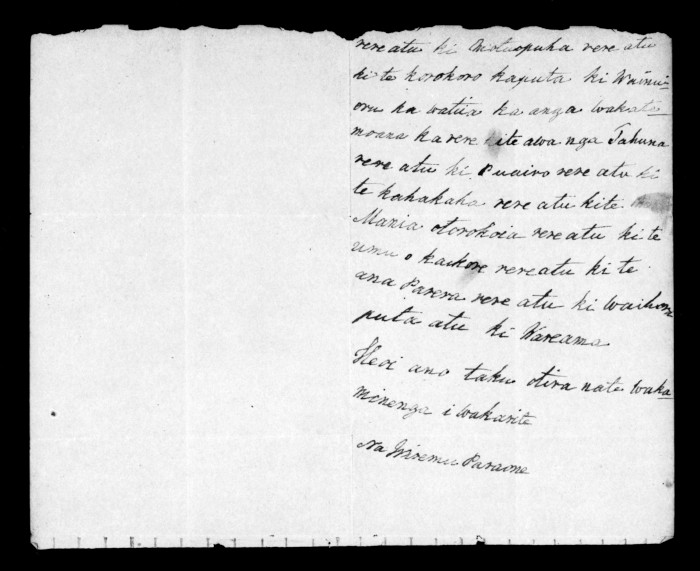 rere atu ki Motuopuha rere atu
ki te korokoro kaputa ki Wainui-
oru ka watiia ka anga wakate
moana ka rere kite awa nga Tahuna
rere atu ki Puairo rere atu ki
te kahakaha rere atu kite
Mania otorokoia rere atu ki te
umu o kaikore rere atu ki te
ana Parera rere atu ki Waihora
puta atu ki Wareama
Heoi ano taku otira nate waka-
minenga i wakarite
Na Wiremu Paraone